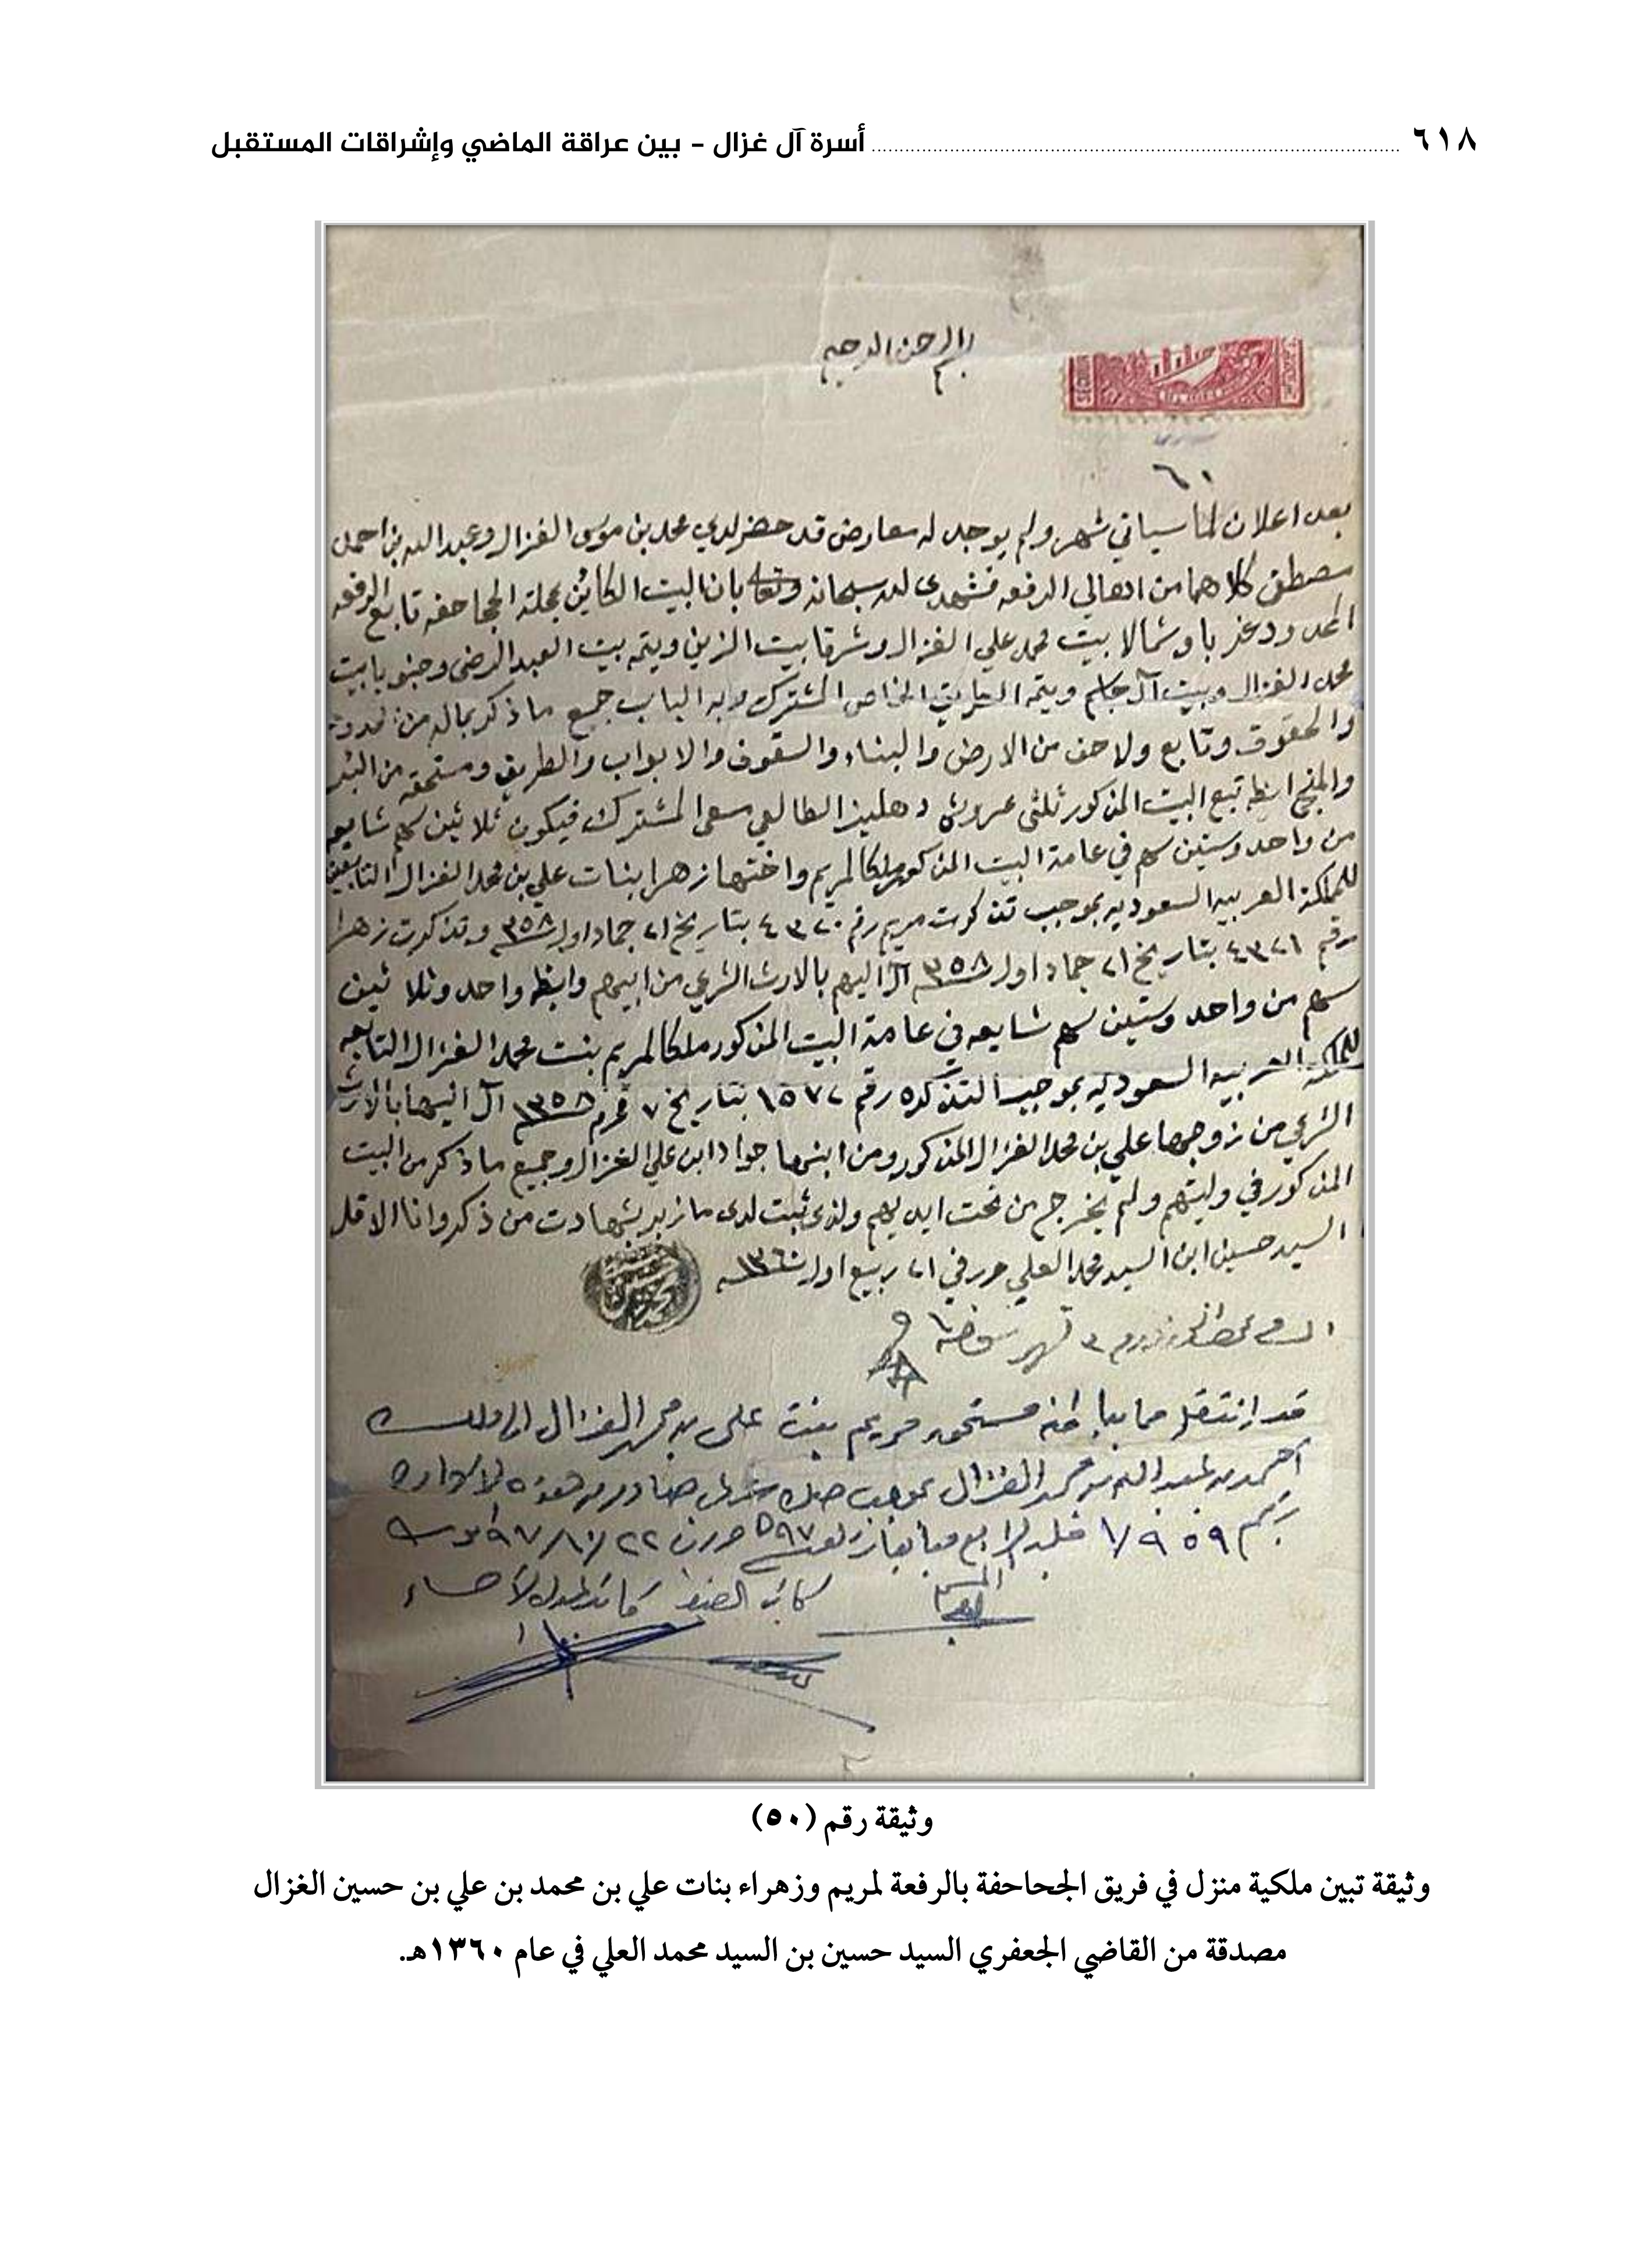 ٦١٨ أسرة آل غزال - بين عراقة الماضي وإشراقات المستقبل
بسم الله الرحمن الرحيم
٦٠
بعد اعلان لما سياتي شهر ولم يوجد له معارض قد حضر لدي محمد بن موسى الغزال وعبد الله بن احمد
مصطفى كلاهما من اهالي الرفعه فشهدى لله سبحانه وتعالى بان البيت الكائن بمحلة الجحاحفه تابع الرفعه
المحدود غربا وشمالا بيت محمد علي الغزال وشرقا بيت الزين ويتمه بيت العبد الرضى وجنوبا بيت
محمد الغزال وبيت آل جاسم ويتمه الطريق الخاص المشترك وبه الباب جميع ما ذكر بماله من الحدود
والحقوق وتابع ولاحق من الارض والبناء والسقوف والابواب والطريق ومستحقه من البئر
والمنح ايظه تبع البيت المذكور ثلثى عروش دهليز الطالعي مسعى المشترك فيكون ثلاثين سهم شايعه
من واحد وستين سهم في عامة البيت المذكور ملكا لمريم واختها زهرا بنات علي بن محمد الغزال التابعين
للمملكة العربيه السعوديه بموجب تذكرت مريم رقم ٤٣٢٠ بتاريخ ٢١ جماد اول ١٣٥٨ وتذكرت زهرا
رقم ٤٣٢١ بتاريخ ٢١ جماد اول ١٣٥٨ آل اليهم بالارث الشرعي من ابيهم وايظه واحد وثلاثين
سهم من واحد وستين سهم شايعه في عامة البيت المذكور ملكا لمريم بنت محمد الغزال التابعه
للمملكة العربيه السعوديه بموجب التذكره رقم ١٥٧٢ بتاريخ ٧ محرم ١٣٥٨ آل اليها بالارث
الشرعي من زوجها علي بن محمد الغزال المذكور ومن ابنها جواد ابن علي الغزال وجميع ما ذكر من البيت
المذكور في وليتهم ولم يخرج من تحت ايديهم ولذى ثبت لدى ما زبر بشهادت من ذكر وانا الاقل
السيد حسين ابن السيد محمد العلي حرر في ٢١ ربيع اول ١٣٦٠
قد إنتقل ما مستحقه مريم بنت علي بن محمد الغزال الى ملك
أحمد بن عبد الله بن محمد الغزال بموجب صك شرعي صادر من هذه الادارة
رقم ١/٩٥٩ جلد الرابع لعام ٩٧ ٢٢
المسجل كاتب الضبط كاتب عدل الاحساء
وثيقة رقم (٥٠)
وثيقة تبين ملكية منزل في فريق الجحاحفة بالرفعة لمريم وزهراء بنات علي بن محمد بن علي بن حسين الغزال
مصدقة من القاضي الجعفري السيد حسين بن السيد محمد العلي في عام ١٣٦٠هـ.